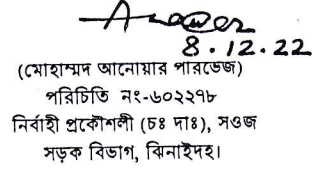 ৪.১২.২২
(মোহাম্মদ আনোয়ার পারভেজ)
পরিচিতি নং-৬০২২৭৮
নির্বাহী প্রকৌশলী (চঃ দাঃ), সওজ
সড়ক বিভাগ, ঝিনাইদহ।